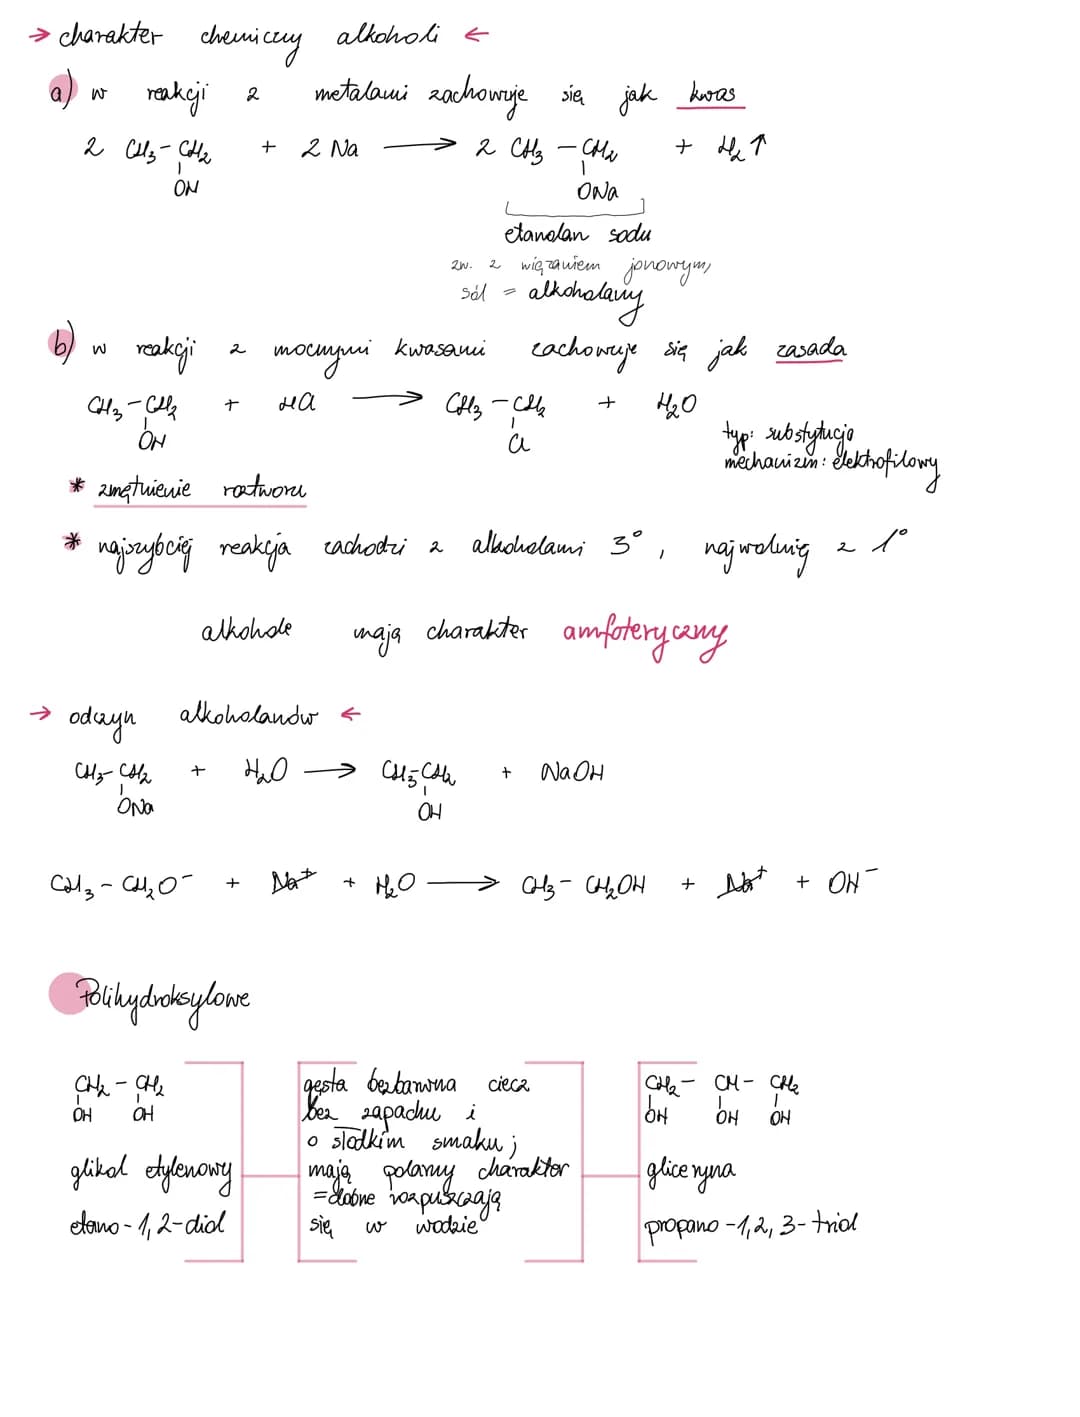 → charakter chemiczny alkoholi ←
a) w reakcji z metalami zachowuje się jak kwas
2 CH₃-CH₂ + 2 Na ⟶ 2 CH₃-CH₂ + H₂↑
OH ONa
etanolan sodu
zw. z wiązaniem jonowym,
sól = alkoholany
b) w reakcji z mocnymi kwasami zachowuje się jak zasada
CH₃-CH₂ + HCl ⟶ CH₃-CH₂ + H₂O
OH Cl
typ: substytucja
mechanizm: elektrofilowy
* zmętnienie roztworu
* najszybciej reakcja zachodzi z alkoholami 3°, najwolniej z 1°
alkohole mają charakter amfoteryczny
→ odczyn alkoholanów ←
CH₃-CH₂ + H₂O ⟶ CH₃-CH₂ + NaOH
ONa OH
CH₃-CH₂O⁻ + Na⁺ + H₂O ⟶ CH₃-CH₂OH + Na⁺ + OH⁻
Polihydroksylowe
CH₂-CH₂
OH OH
glikol etylenowy
etano-1,2-diol
gęsta bezbarwna ciecz
bez zapachu i
o słodkim smaku;
mają polarny charakter
=dobne rozpuszczają
się w wodzie
CH₂-CH-CH₂
OH OH OH
gliceryna
propano-1,2,3-triol